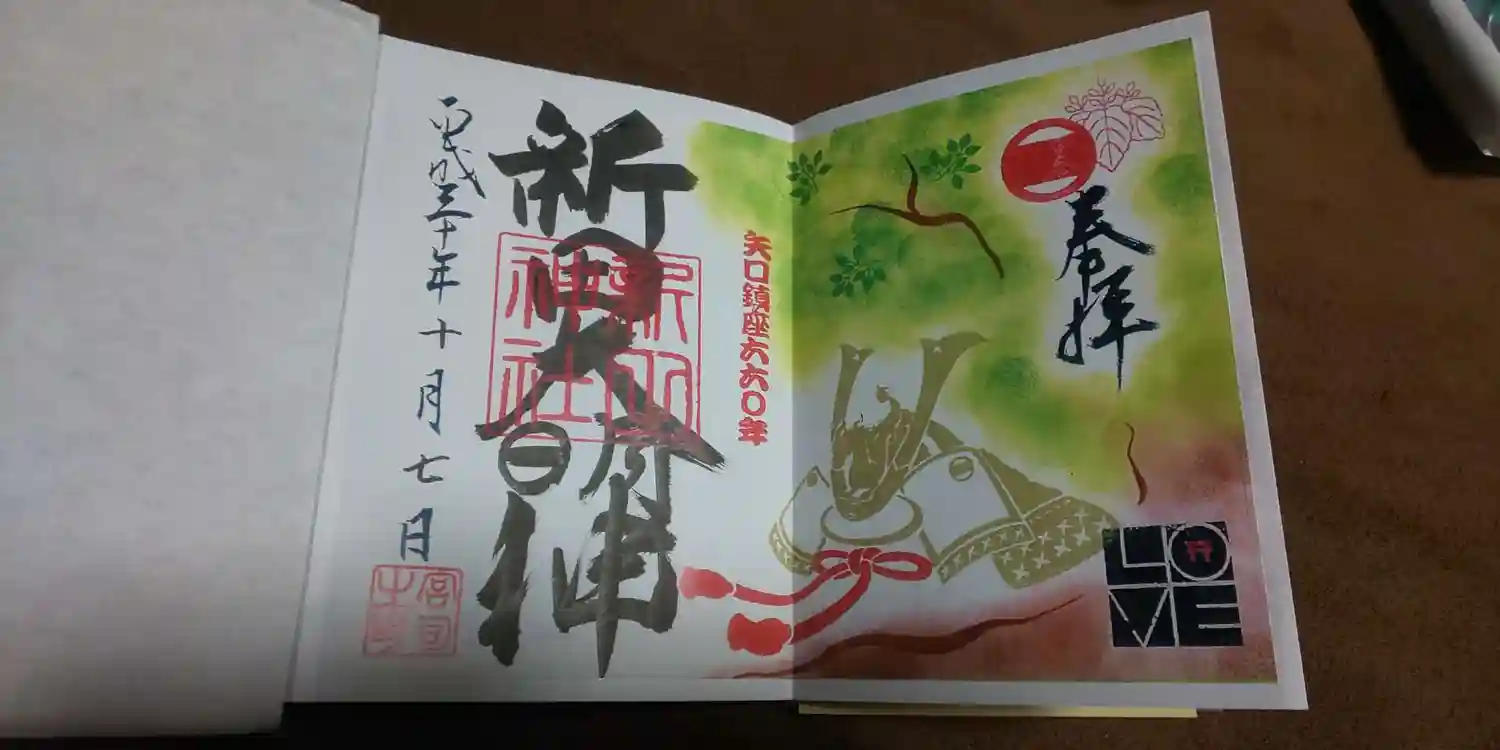 奉拝
LO
VE
矢口鎮座六六〇年
新田大明神
新田
神社
平成三十年十月七日
宮司